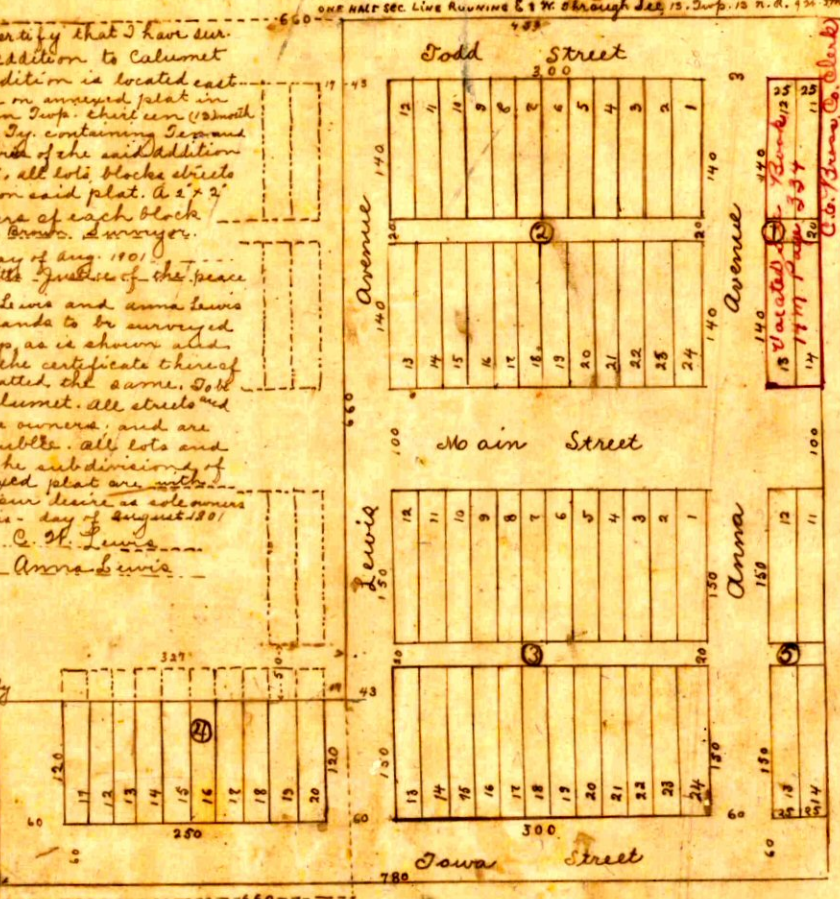 ONE HALF SEC. LINE RUNNING E & W. through Sec. 13. Twp. 13 n.
660
ertify that I have sur-
addition to Calumet
dition is located east
on annexed plat in
n Twp. thirteen (13) north
Ty. containing Ten and
of the said addition
, all lots, blocks streets
on said plat. A 2" x 2"
ers of each block
Brown Surveyor.
ay of Aug. 1901
Justice of the peace
Lewis and Anna Lewis
ands to be surveyed
as is shown and
the certificate thereof
atted the same. To be
lumet. All streets and
e owners. and are
ublic. All lots and
he subdivisions of
xed plat are with
our desire as sole owners
day of August 1901
C. H. Lewis
Anna Lewis
Todd Street
300
17 43
12 4 10 9 8 7 6 5 4 3 2 1
140 140
20 2 20
140 140
13 14 15 16 17 18 19 20 21 22 23 24
Avenue
Avenue
3
25 25
12 11
140
1 20
140
13 14
Vacated see Book
14M Page 334
Co. Clerk
660
100 Main Street 100
Lewis
Anna
12 11 10 9 8 7 6 5 4 3 2 1
12 11
150 150 150
20 3 20
5
150 150 150
13 14 15 16 17 18 19 20 21 22 23 24
13 14
25 25
327
50
43
4
120 120
11 12 13 14 15 16 17 18 19 20
60 250 60
300 60
60 60
Iowa Street
780